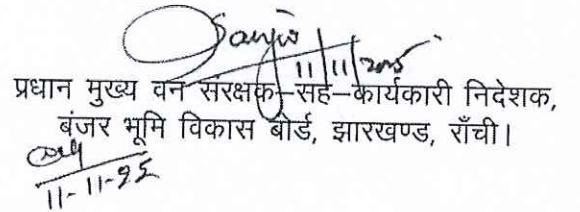 11/11/2025
प्रधान मुख्य वन संरक्षक–सह–कार्यकारी निदेशक,
बंजर भूमि विकास बोर्ड, झारखण्ड, राँची।
11-11-25